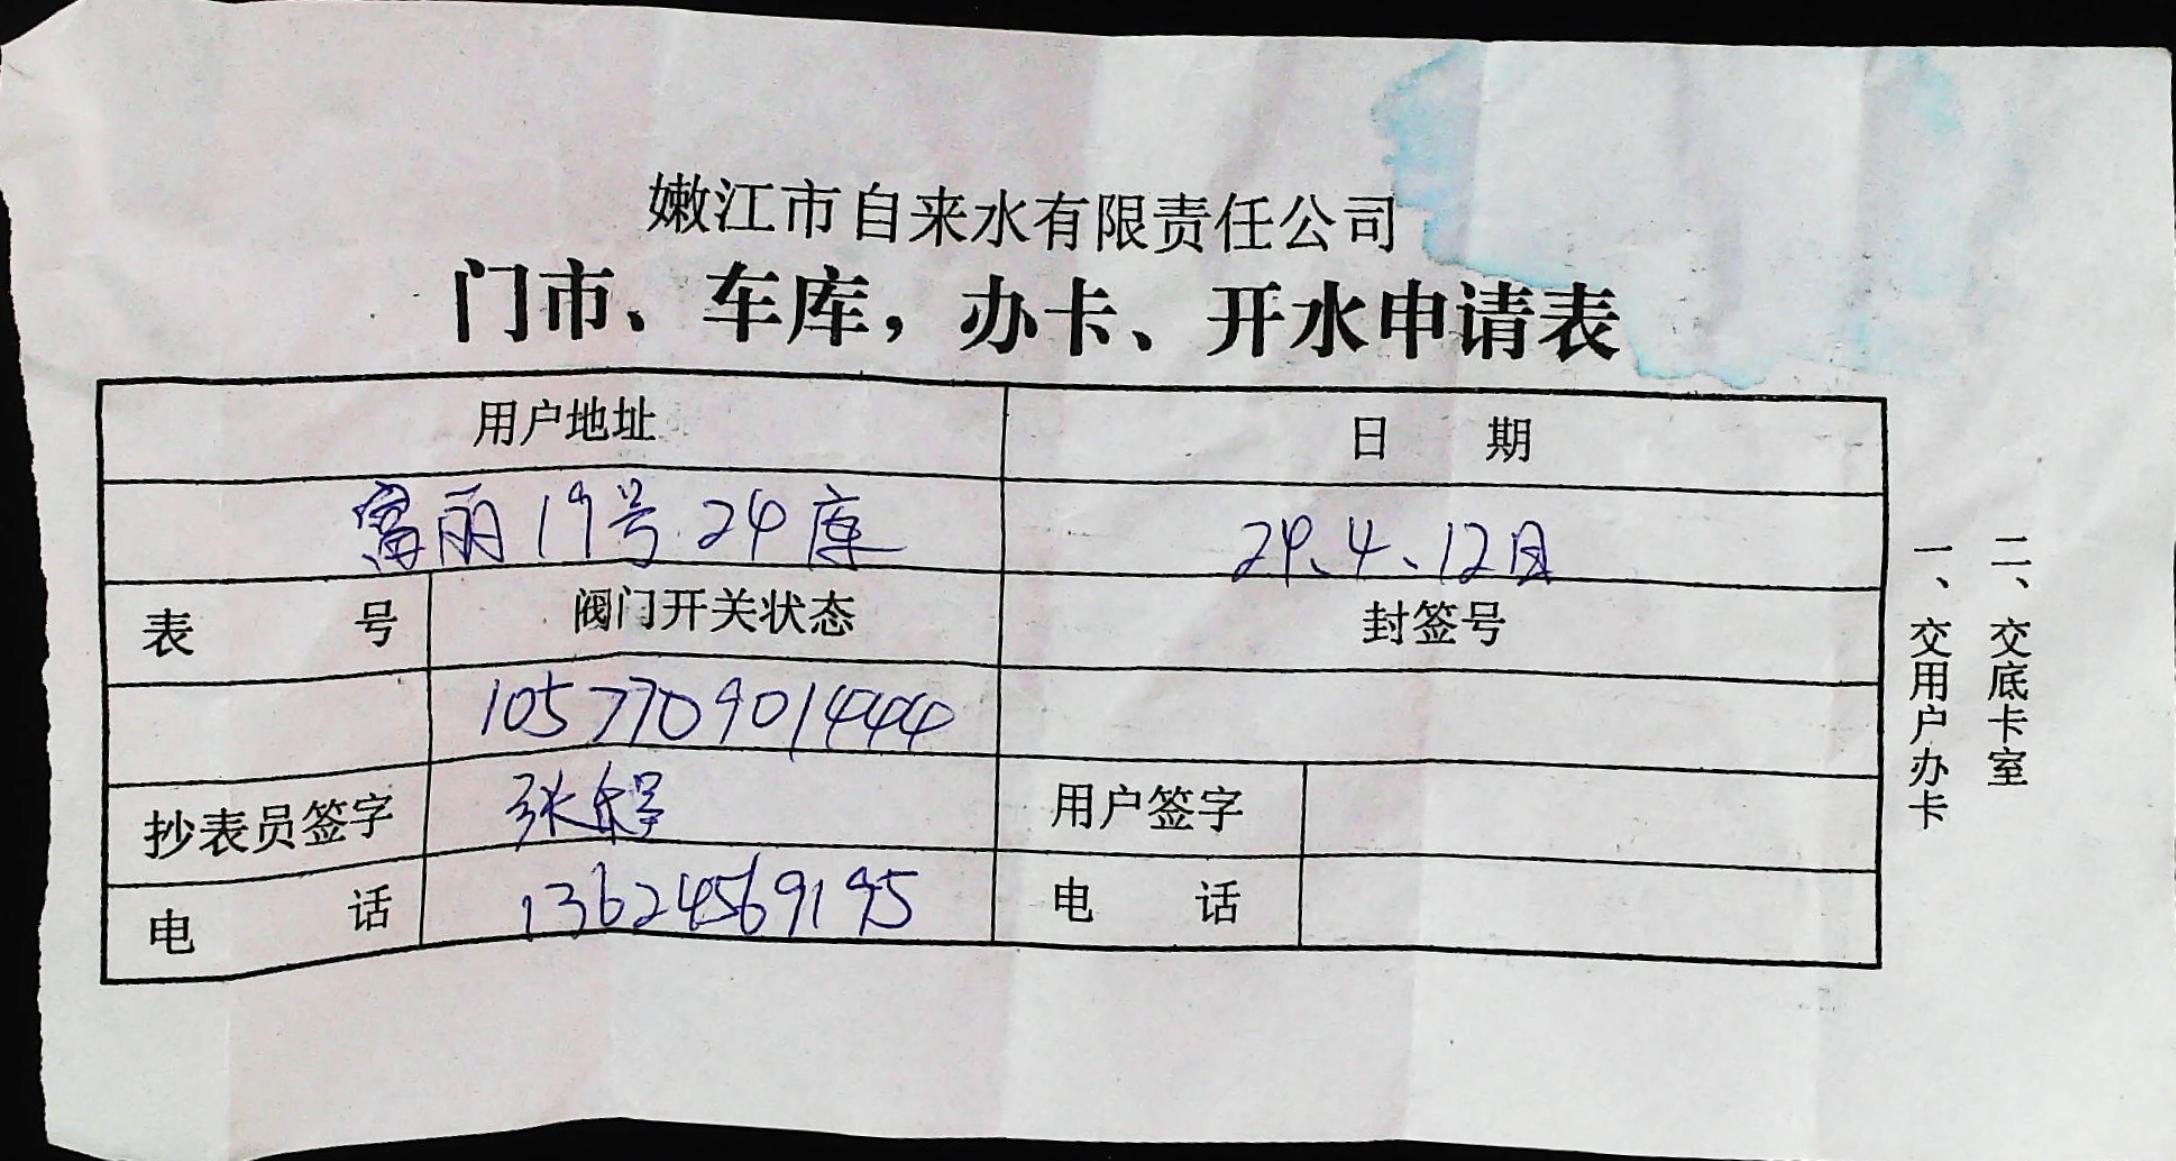 嫩江市自来水有限责任公司
门市、车库，办卡、开水申请表
用户地址 日 期
富丽19号24库 24.4、12日
表 号 阀门开关状态 封签号
105770901444
抄表员签字 张 用户签字
电 话 13624569195 电 话
一、交用户办卡
二、交底卡室